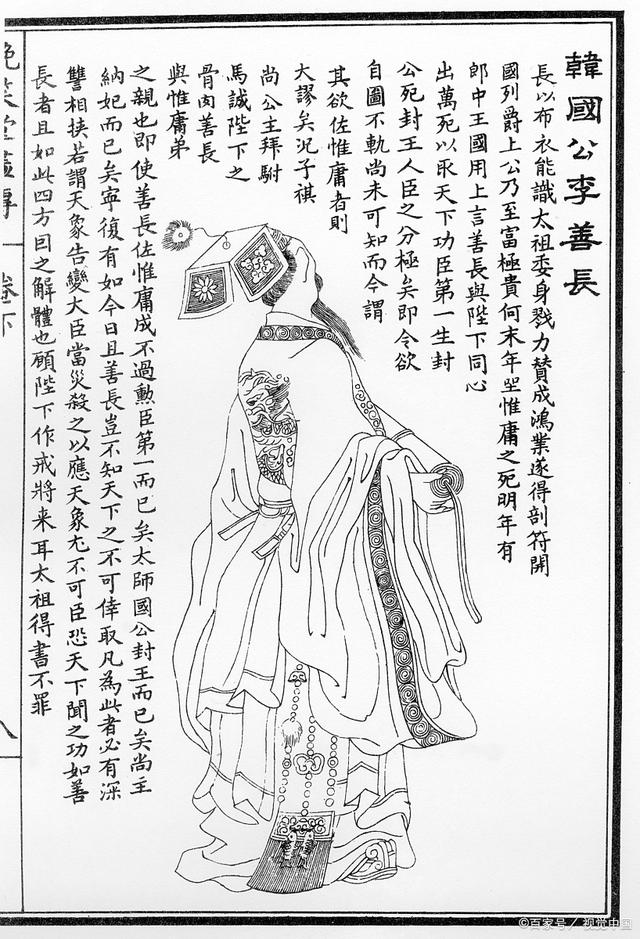 韓國公李善長
長以布衣能識太祖委身戮力贊成鴻業遂得剖符開
國列爵上公乃至富極貴何末年坐惟庸之死明年有
郎中王國用上言善長與陛下同心
出萬死以取天下功臣第一生封
公死封王人臣之分極矣即令欲
自圖不軌尚未可知而今謂
其欲佐惟庸者則
大謬矣況子祺
尚公主拜駙
馬誠陛下之
骨肉善長
與惟庸弟
之親也即使善長佐惟庸成不過勲臣第一而已矣太師國公封王而已矣尚主
納妃而已矣寧復有如今日且善長豈不知天下之不可倖取凡為此者必有深
讐相挟若謂天象告變大臣當災殺之以應天象尤不可臣恐天下聞之功如善
長者且如此四方回之解體也願陛下作戒將来耳太祖得書不罪
晚笑堂畫傳
卷下
©百家号／视觉中国